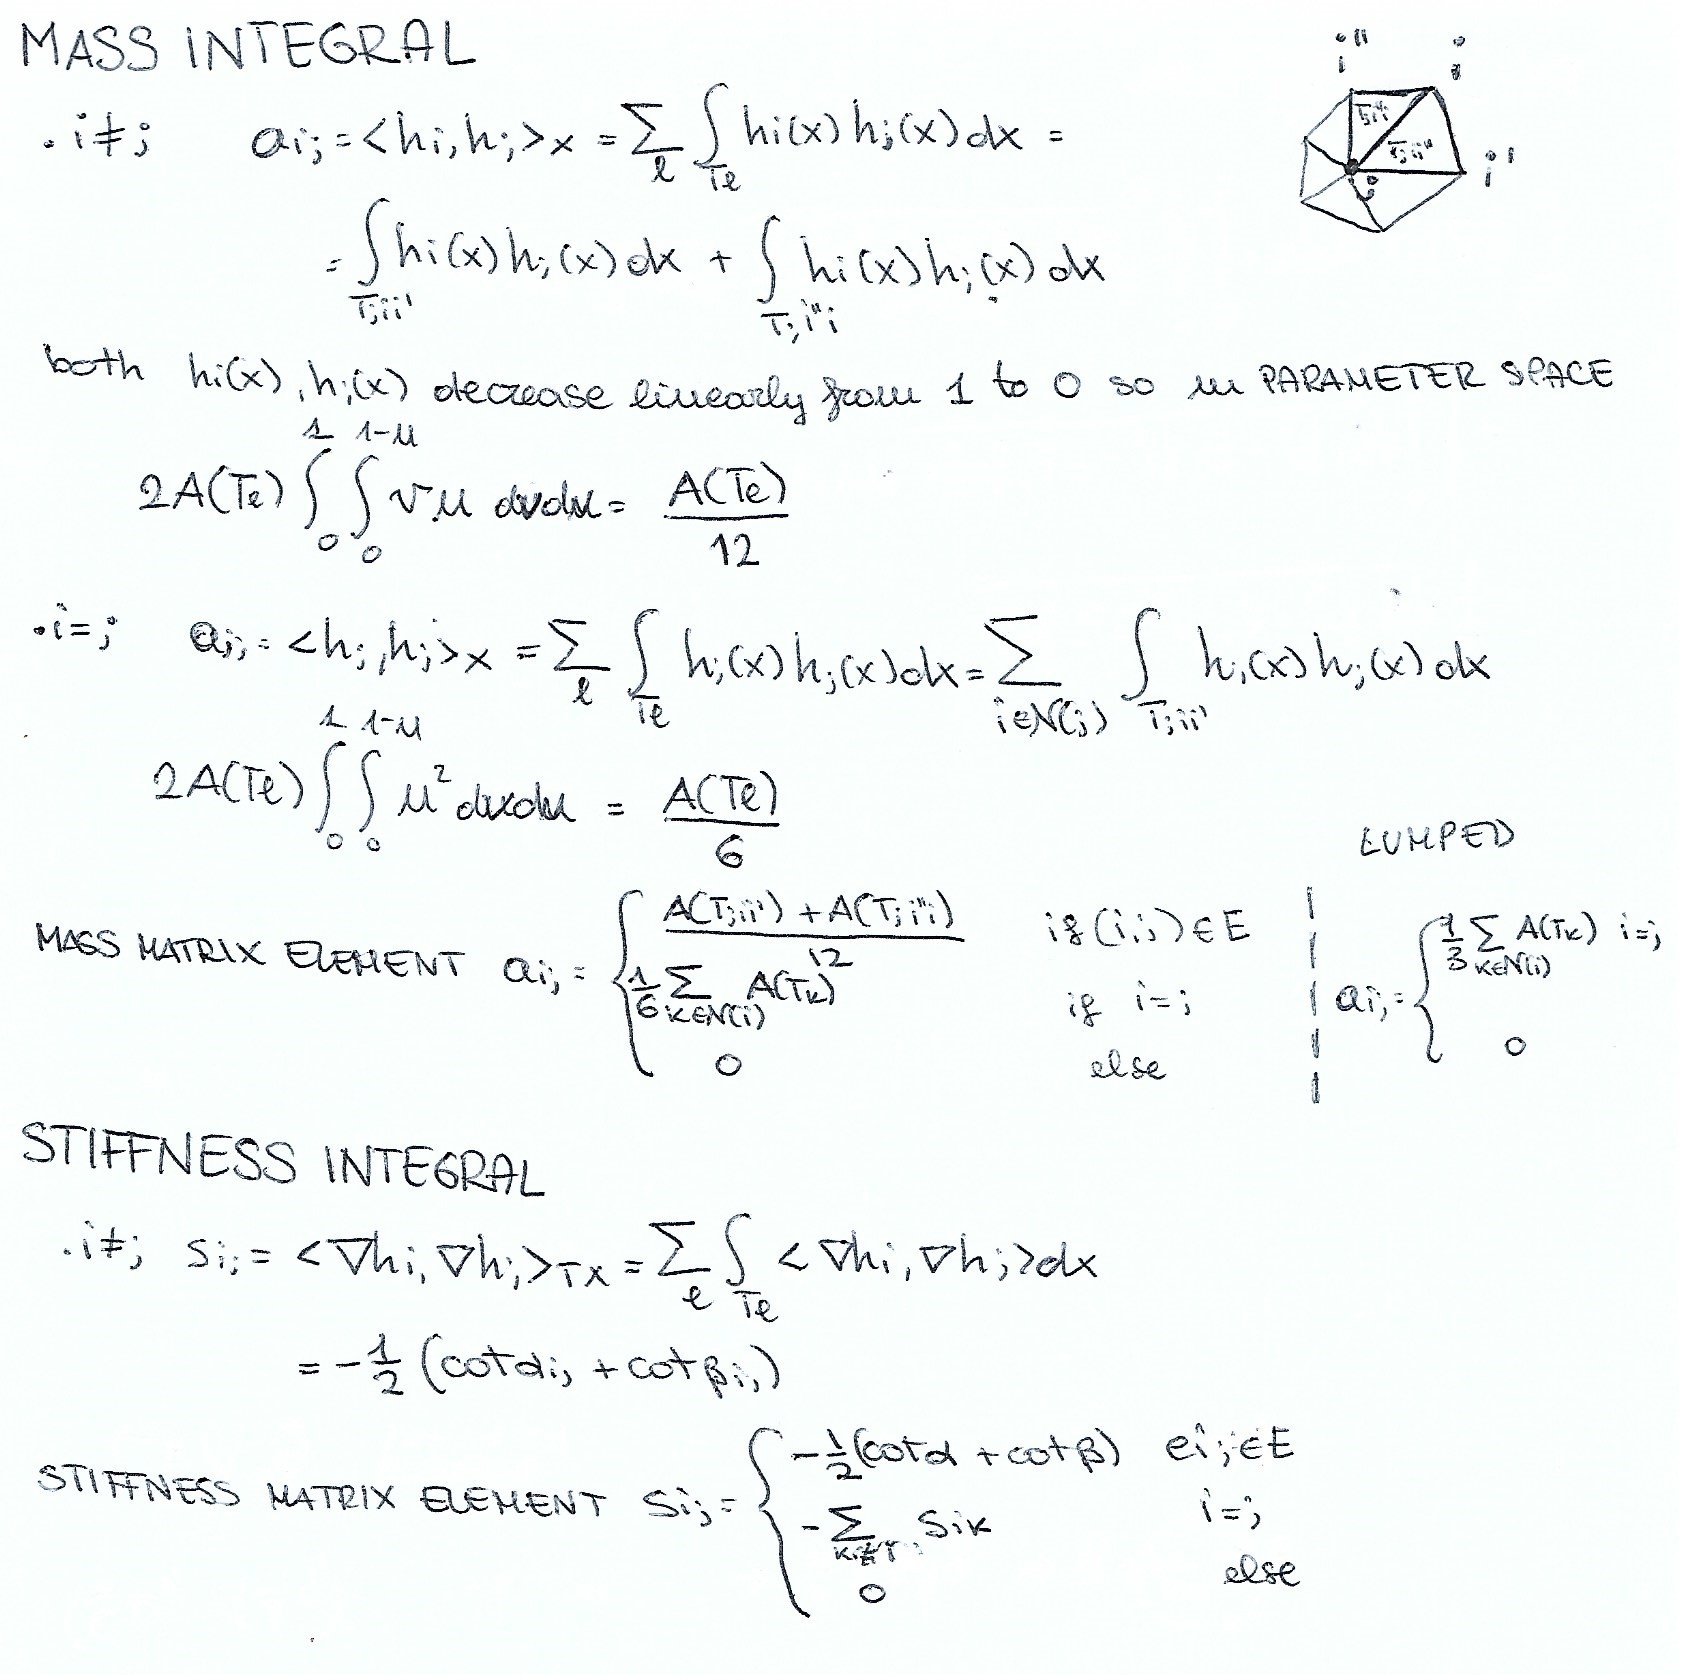 MASS INTEGRAL
i'' i
. i≠j aij = <hi, hj>x = ∑l ∫Tl hi(x) hj(x) dx =
Tji''i
Tjii'
i'
j
= ∫Tjii' hi(x) hj(x) dx + ∫Tji''i hi(x) hj(x) dx
both hi(x), hj(x) decrease linearly from 1 to 0 so in PARAMETER SPACE
2A(Tl) ∫₀¹ ∫₀^(1-u) v u dv du = A(Tl)/12
. i=j ajj = <hj, hj>x = ∑l ∫Tl hj(x) hj(x) dx = ∑i∈N(j) ∫Tjii' hj(x) hj(x) dx
2A(Tl) ∫₀¹ ∫₀^(1-u) u² dv du = A(Tl)/6
LUMPED
MASS MATRIX ELEMENT aij = { (A(Tjii') + A(Tji''i))/12 if (i,j) ∈ E | aij = { 1/3 ∑k∈N(i) A(Tk) i=j
1/6 ∑k∈N(i) A(Tk) if i=j
0 else | 0
STIFFNESS INTEGRAL
. i≠j sij = <∇hi, ∇hj>TX = ∑l ∫Tl <∇hi, ∇hj> dx
= -1/2 (cotαij + cotβij)
STIFFNESS MATRIX ELEMENT sij = { -1/2 (cotα + cotβ) eij ∈ E
-∑k≠i sik i=j
0 else